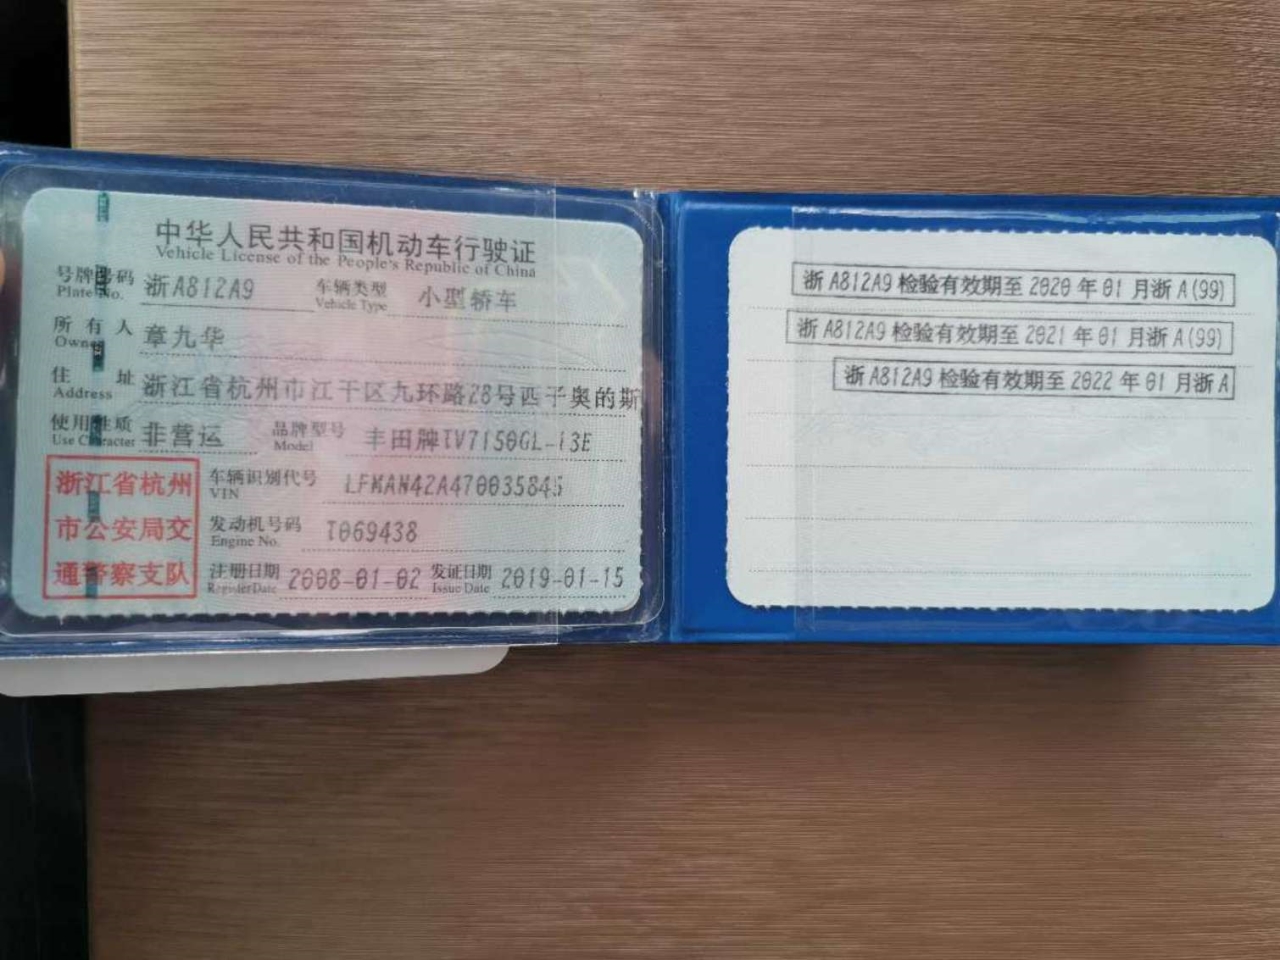 中华人民共和国机动车行驶证
Vehicle License of the People's Republic of China
号牌号码 浙A812A9 车辆类型 小型轿车
Plate No. Vehicle Type
所有人 章九华
Owner
住址 浙江省杭州市江干区九环路28号西子奥的斯
Address
使用性质 非营运 品牌型号 丰田牌TV7150GL-I3E
Use Character Model
浙江省杭州
市公安局交
通警察支队
车辆识别代号 LFMAN42A470035845
VIN
发动机号码 T069438
Engine No.
注册日期 2008-01-02 发证日期 2019-01-15
Register Date Issue Date
浙A812A9检验有效期至2020年01月浙A(99)
浙A812A9检验有效期至2021年01月浙A(99)
浙A812A9检验有效期至2022年01月浙A